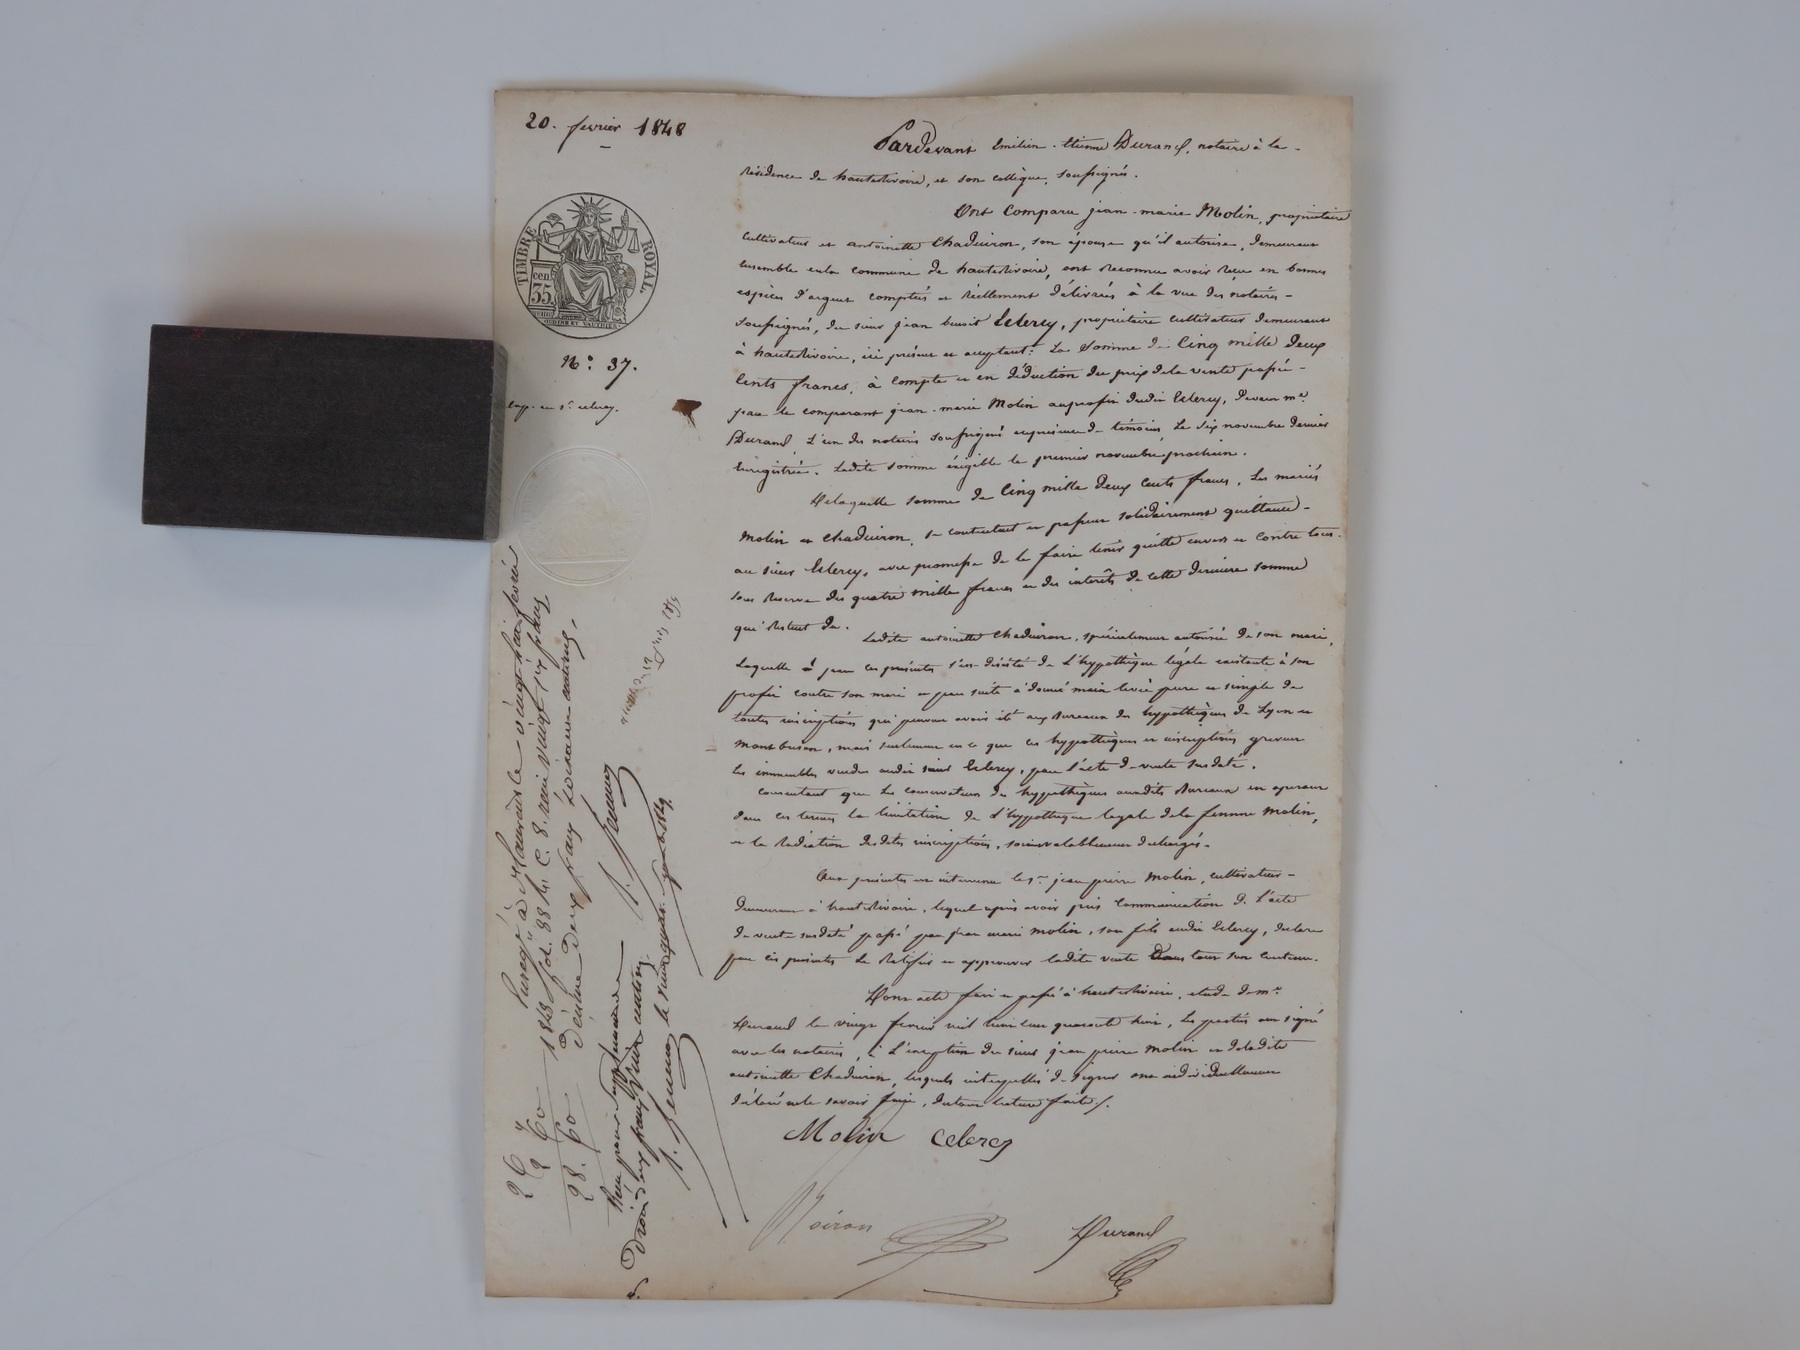 20. fevrier 1848
TIMBRE ROYAL.
cen.
35.
N.° 37.
Pardevant Emilien-Etienne Durand, notaire à la
résidence de hauterivoire, et son collègue, soussignés.
Ont Comparu jean-marie Molin, propriétaire
cultivateur et antoinette Chaduiron, son épouse qu'il autorise, demeurant
ensemble en la commune de hauterivoire, ont reconnu avoir reçu en bonnes
espèces d'argent comptées et réellement délivrées à la vue des notaires
soussignés, du sieur jean benoit Celercy, propriétaire cultivateur demeurant
à hauterivoire, ici présent et acceptant: La Somme de Cinq mille deux
Cents francs, à compte et en déduction du prix de la vente passée
par le comparant jean-marie Molin au profit dudit Celercy, devant me.
Durand, l'un des notaires soussignés en présence de témoins, le six novembre dernier
Enregistrée. Ladite somme éxigible le premier novembre prochain.
De laquelle somme de Cinq mille deux Cents francs, les mariés
Molin et Chaduiron, se contentent et passent solidairement quittance
au sieur Celercy, avec promesse de le faire tenir quitte envers et contre tous
sous reserve des quatre mille francs et des intérêts de cette dernière somme
qui restent dû.
Ladite antoinette Chaduiron, spécialement autorisée de son mari,
Laquelle a par ces présentes s'est désisté de L'hypothèque légale existante à son
profit contre son mari et par suite a donné main levée pure et simple de
toutes inscriptions qui peuvent avoir été aux Bureaux des hypothèques de Lyon et
montbrison, mais seulement en ce que ces hypothèques et inscriptions grèvent
les immeubles vendus audit sieur Celercy, par l'acte de vente susdaté.
Consentant que les conservateurs des hypothèques auxdits Bureaux en operant
dans ces termes la limitation de l'hypothèque légale de la femme Molin,
et la radiation desdites inscriptions, soient valablement déchargés.
Aux présentes est intervenu le sr. jean pierre Molin, cultivateur
demeurant à hauterivoire, lequel après avoir pris Communication de l'acte
de vente susdaté passé par jean marie Molin, son fils audit Celercy, déclare
par ces présentes le ratifier et approuver ladite vente dans tout son contenu.
Dont acte fait et passé à hauterivoire, étude de me.
Durand le vingt fevrier mil huit cent quarante huit, les parties ont signé
avec les notaires, à l'exception du sieur jean pierre Molin et de ladite
antoinette Chaduiron, lesquels interpellés de signer ont individuellement
déclaré ne le savoir faire, du tout lecture faite.
Molin Celercy
Noiron Durand
26 "
2 60
28. 60